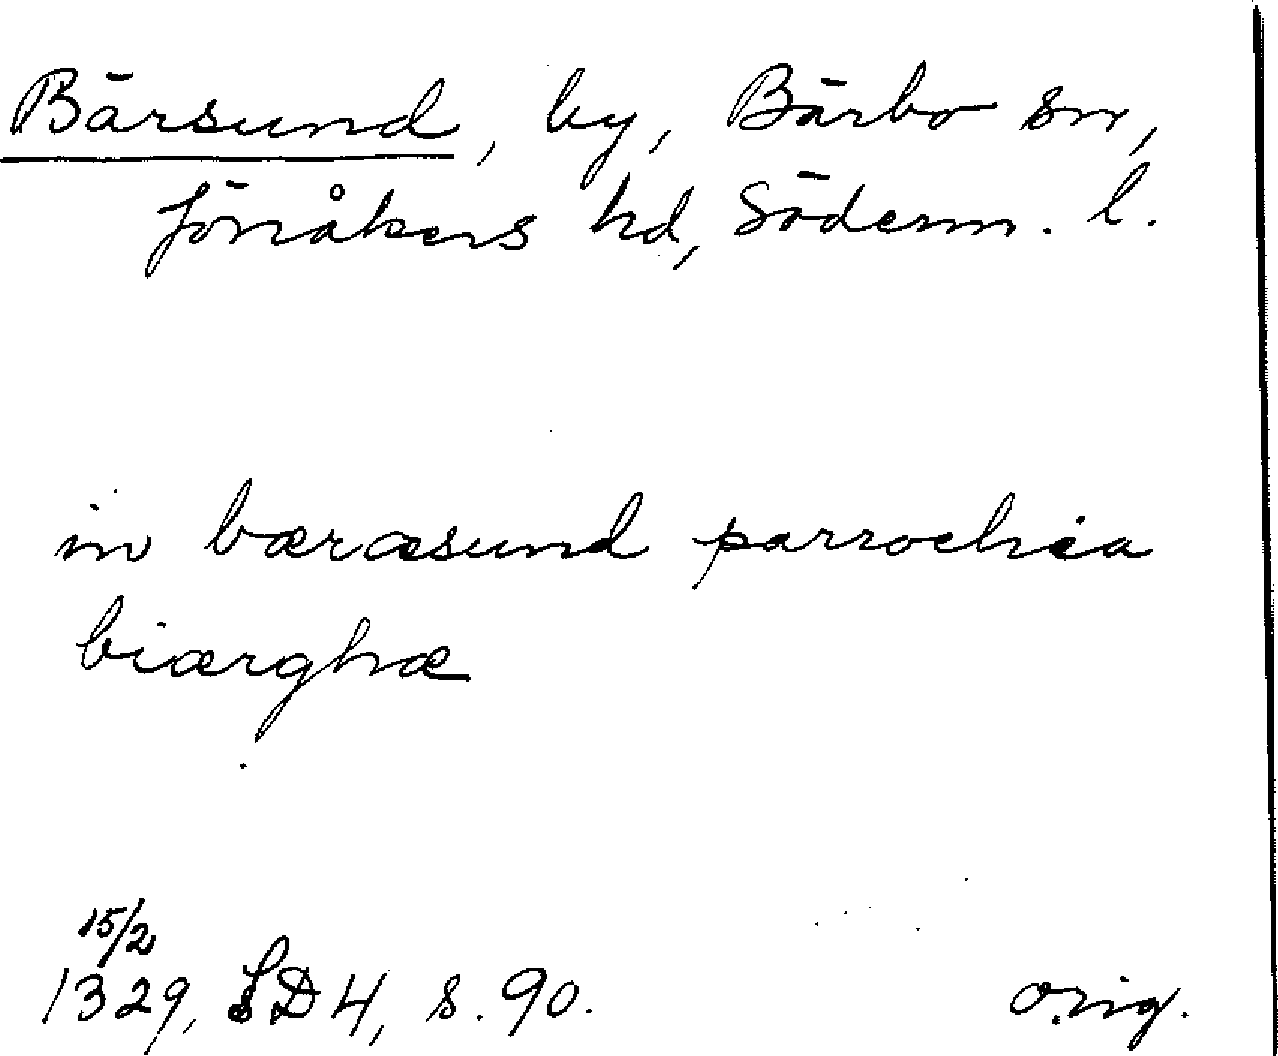 Bärsund, by, Bärbo sn,
Jönåkers hd, Söderm. l.
in bæræsund parrochia
biærghæ
15/2
1329, SD 4, s. 90.
orig.